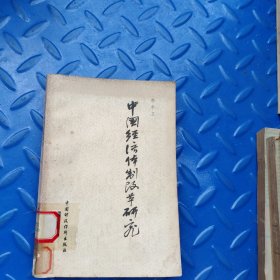 中国经济体制改革研究
中国财政经济出版社